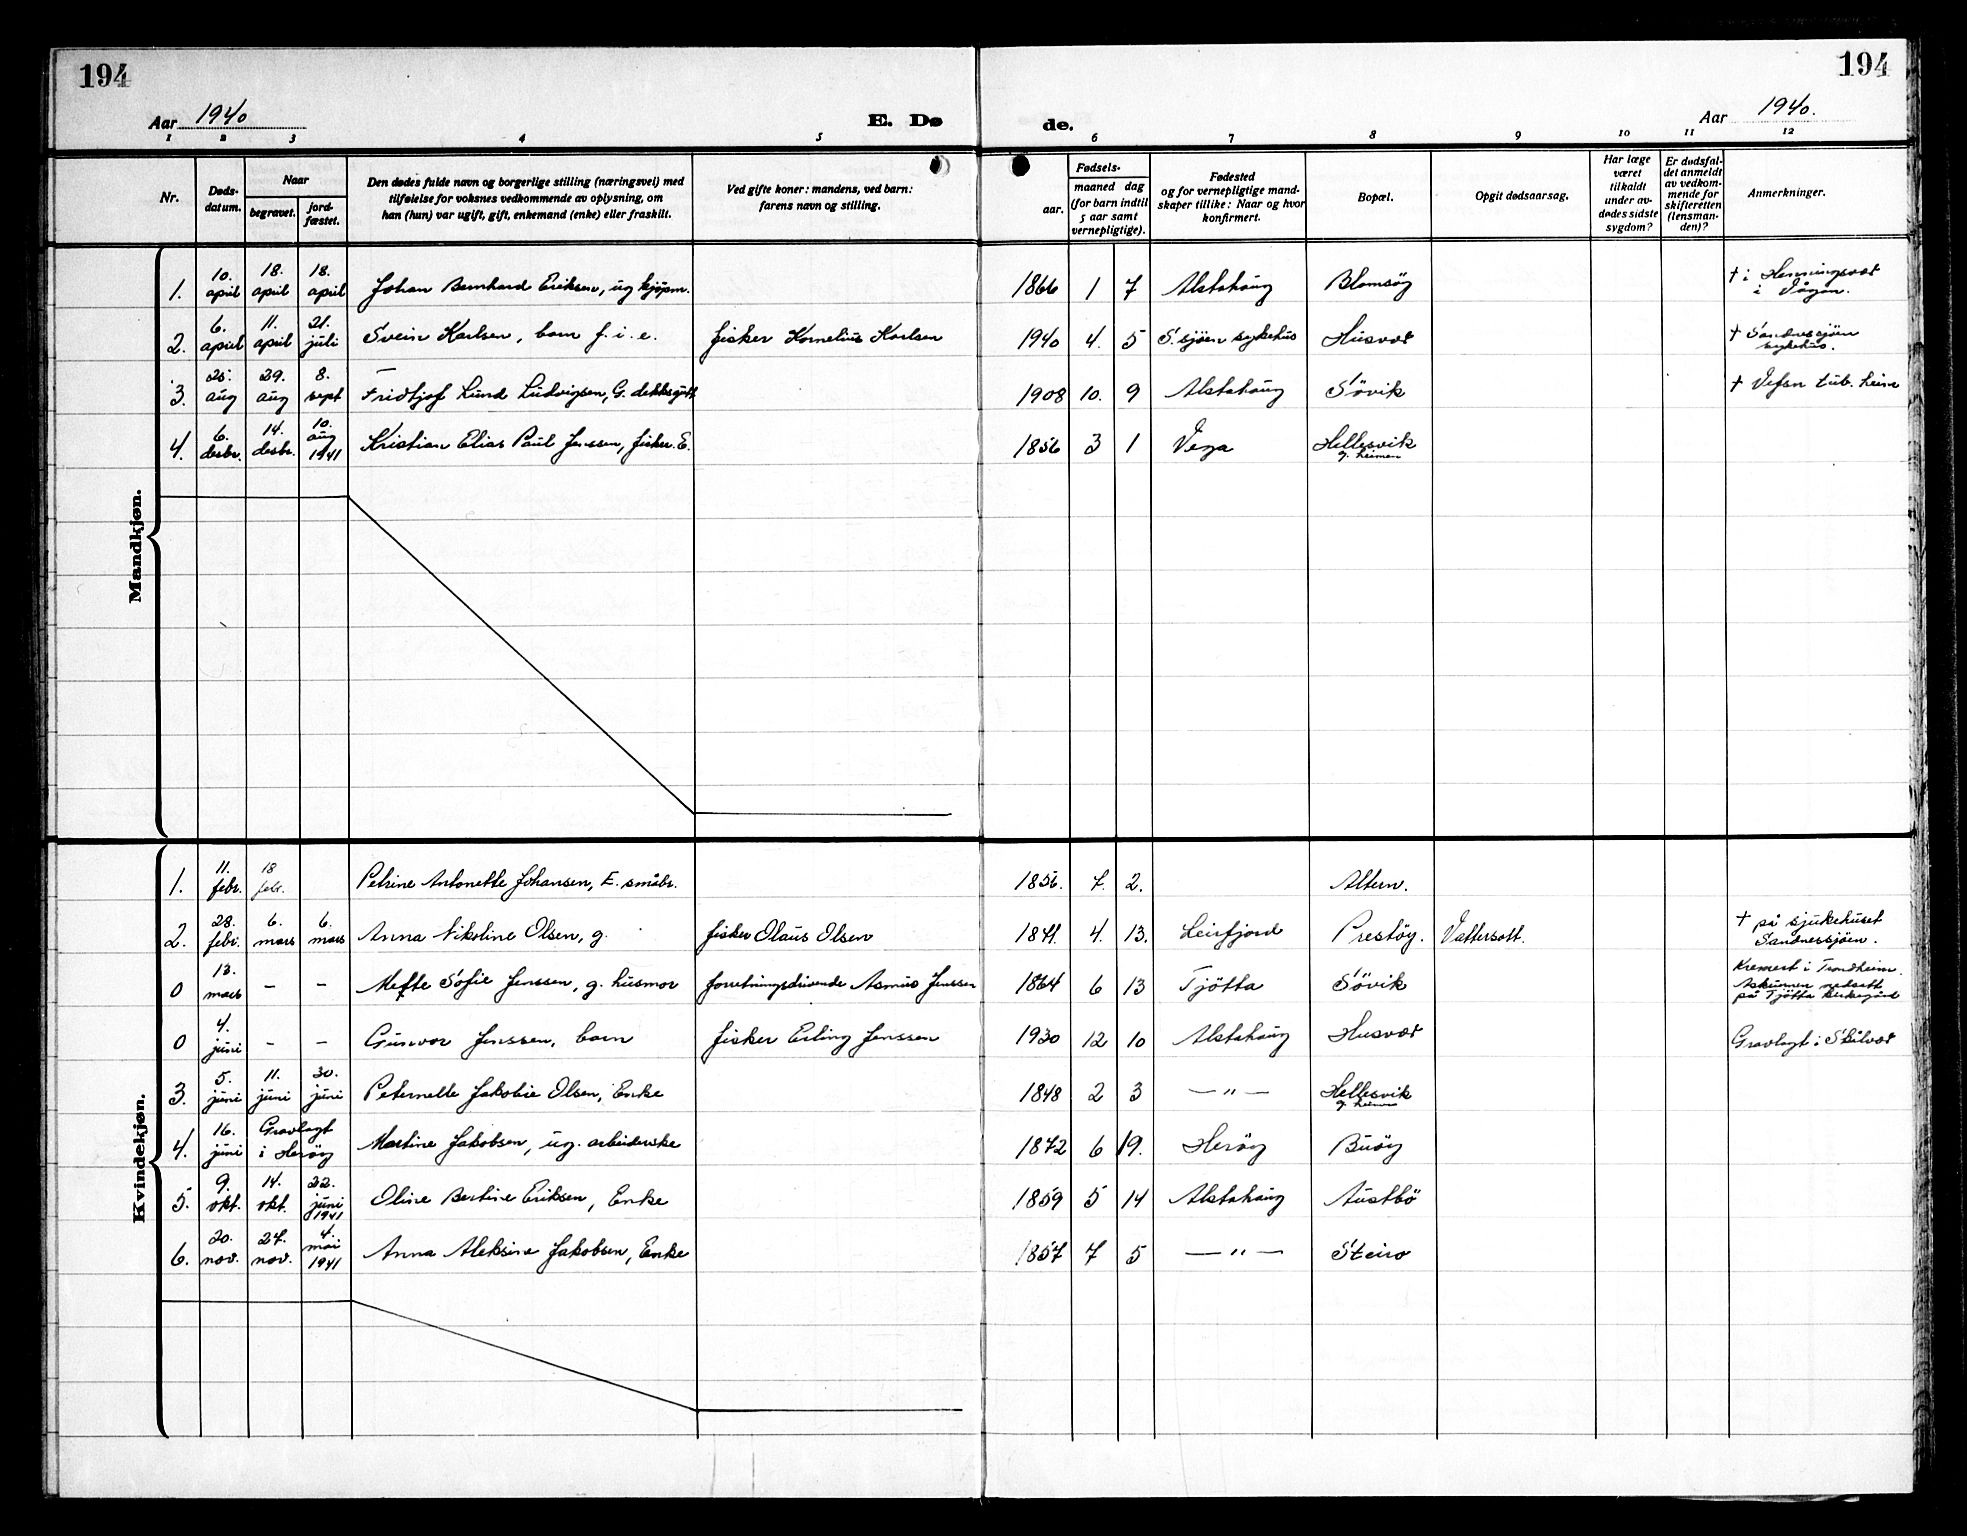 194
194
Aar 1940
E. Dø
de.
Aar 1940.
1 2 3 4 5 6 7 8 9 10 11 12
Nr.
Døds-
datum.
Naar
begravet.
jord-
fæstet.
Den dødes fulde navn og borgerlige stilling (næringsvei) med
tilføielse for voksnes vedkommende av oplysning, om
han (hun) var ugift, gift, enkemand (enke) eller fraskilt.
Ved gifte koner: mandens, ved barn:
farens navn og stilling.
Fødsels-
aar.
maaned dag
(for barn indtil
5 aar samt
vernepligtige).
Fødested
og for vernepligtige mand-
skaper tillike: Naar og hvor
konfirmert.
Bopæl.
Opgit dødsaarsag.
Har læge
været
tilkaldt
under av-
dødes sidste
sygdom?
Er dødsfal-
det anmeldt
av vedkom-
mende for
skifteretten
(lensman-
den)?
Anmerkninger.
Mandkjøn.
1. 10. april 18. april 18. april Johan Bernhard Eriksen, ug kjøpm. 1866 1 7 Alstahaug Blomsöy † i Henningsvær i Vågan.
2. 6. april 11. april 21. juli Svein Karlsen, barn f. i. e. fisker Kornelius Karlsen 1940 4. 5 S.sjöen sykehus Husvær † Sandnessjöen sykehus.
3. 25. aug 29. aug 8. sept Fridtjof Lund Ludvigsen, G. dekksgutt 1908 10. 9 Alstahaug Sövik † Vefsn tub. heim
4. 6. desbr. 14. desbr. 10. aug 1941 Kristian Elias Paul Jenssen, fisker. E. 1856 3 1 Vega Hellesvik g. heimen
Kvindekjøn.
1. 11. febr. 18 febr. Petrine Antonette Johansen, E. småbr. 1856. 7. 2. Altern.
2. 28. febr. 6. mars 6. mars Anna Nikoline Olsen, g. fisker Olaus Olsen 1871. 4. 13. Leirfjord Prestöy. Vattersott. † på sjukehuset Sandnessjöen.
0 13. mars — — Mette Sofie Jenssen, g. husmor forretningsdrivende Asmus Jenssen 1864 6 13 Tjötta Sövik Kremert i Trondheim. Askurnen nedsatt på Tjötta kirkegård
0 4. juni — — Gunvor Jenssen, barn fisker Erling Jenssen 1930 12 10 Alstahaug Husvær Gravlagt i Skålvær
3. 5. juni 11. juni 30. juni Peternelle Jakobie Olsen, Enke 1848 2 3 — " — Hellesvik g. heimen
4. 16. juni Gravlagt i Heröy Martine Jakobsen, ug. arbeiderske 1872 6 19. Heröy Buöy
5. 9. okt. 14. okt. 22. juni 1941 Oline Bertine Eriksen, Enke 1859 5 14 Alstahaug Austbö
6. 20. nov. 27. nov. 4. mai 1941 Anna Aleksine Jakobsen, Enke 1857 7 5 — " — Steiro